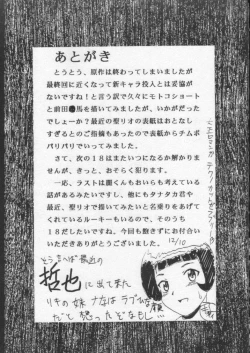 あとがき
とうとう、原作は終わってしまいましたが
最終回に近くなって新キャラ投入とは妥協が
ないですね！と言う訳で久々にモトコショート
と前田●馬を描いてみましたが、いかがだった
でしょーか？最近の聖リオの表紙はおとなし
すぎるとのご指摘もあったので表紙からチムポ
バリバリでいってみました。
さて、次の１８はまたいつになるか解かりませ
んが、きっと、おそらく犯ります。
一応、ラストは聞くんもおいらも考えている
話があるみたいですし、他にもタナタカ君や
最近、聖リオで描いてみたいと名乗りをあげて
くれているルーキーもいるので、そのうち
１８だしたいですね。今回も飽きずにお付合い
いただきありがとうございました。
12/10
そういへば最近の
哲也に出て来た
リキの妹ナナはラブひな
だと想ったぞなもし